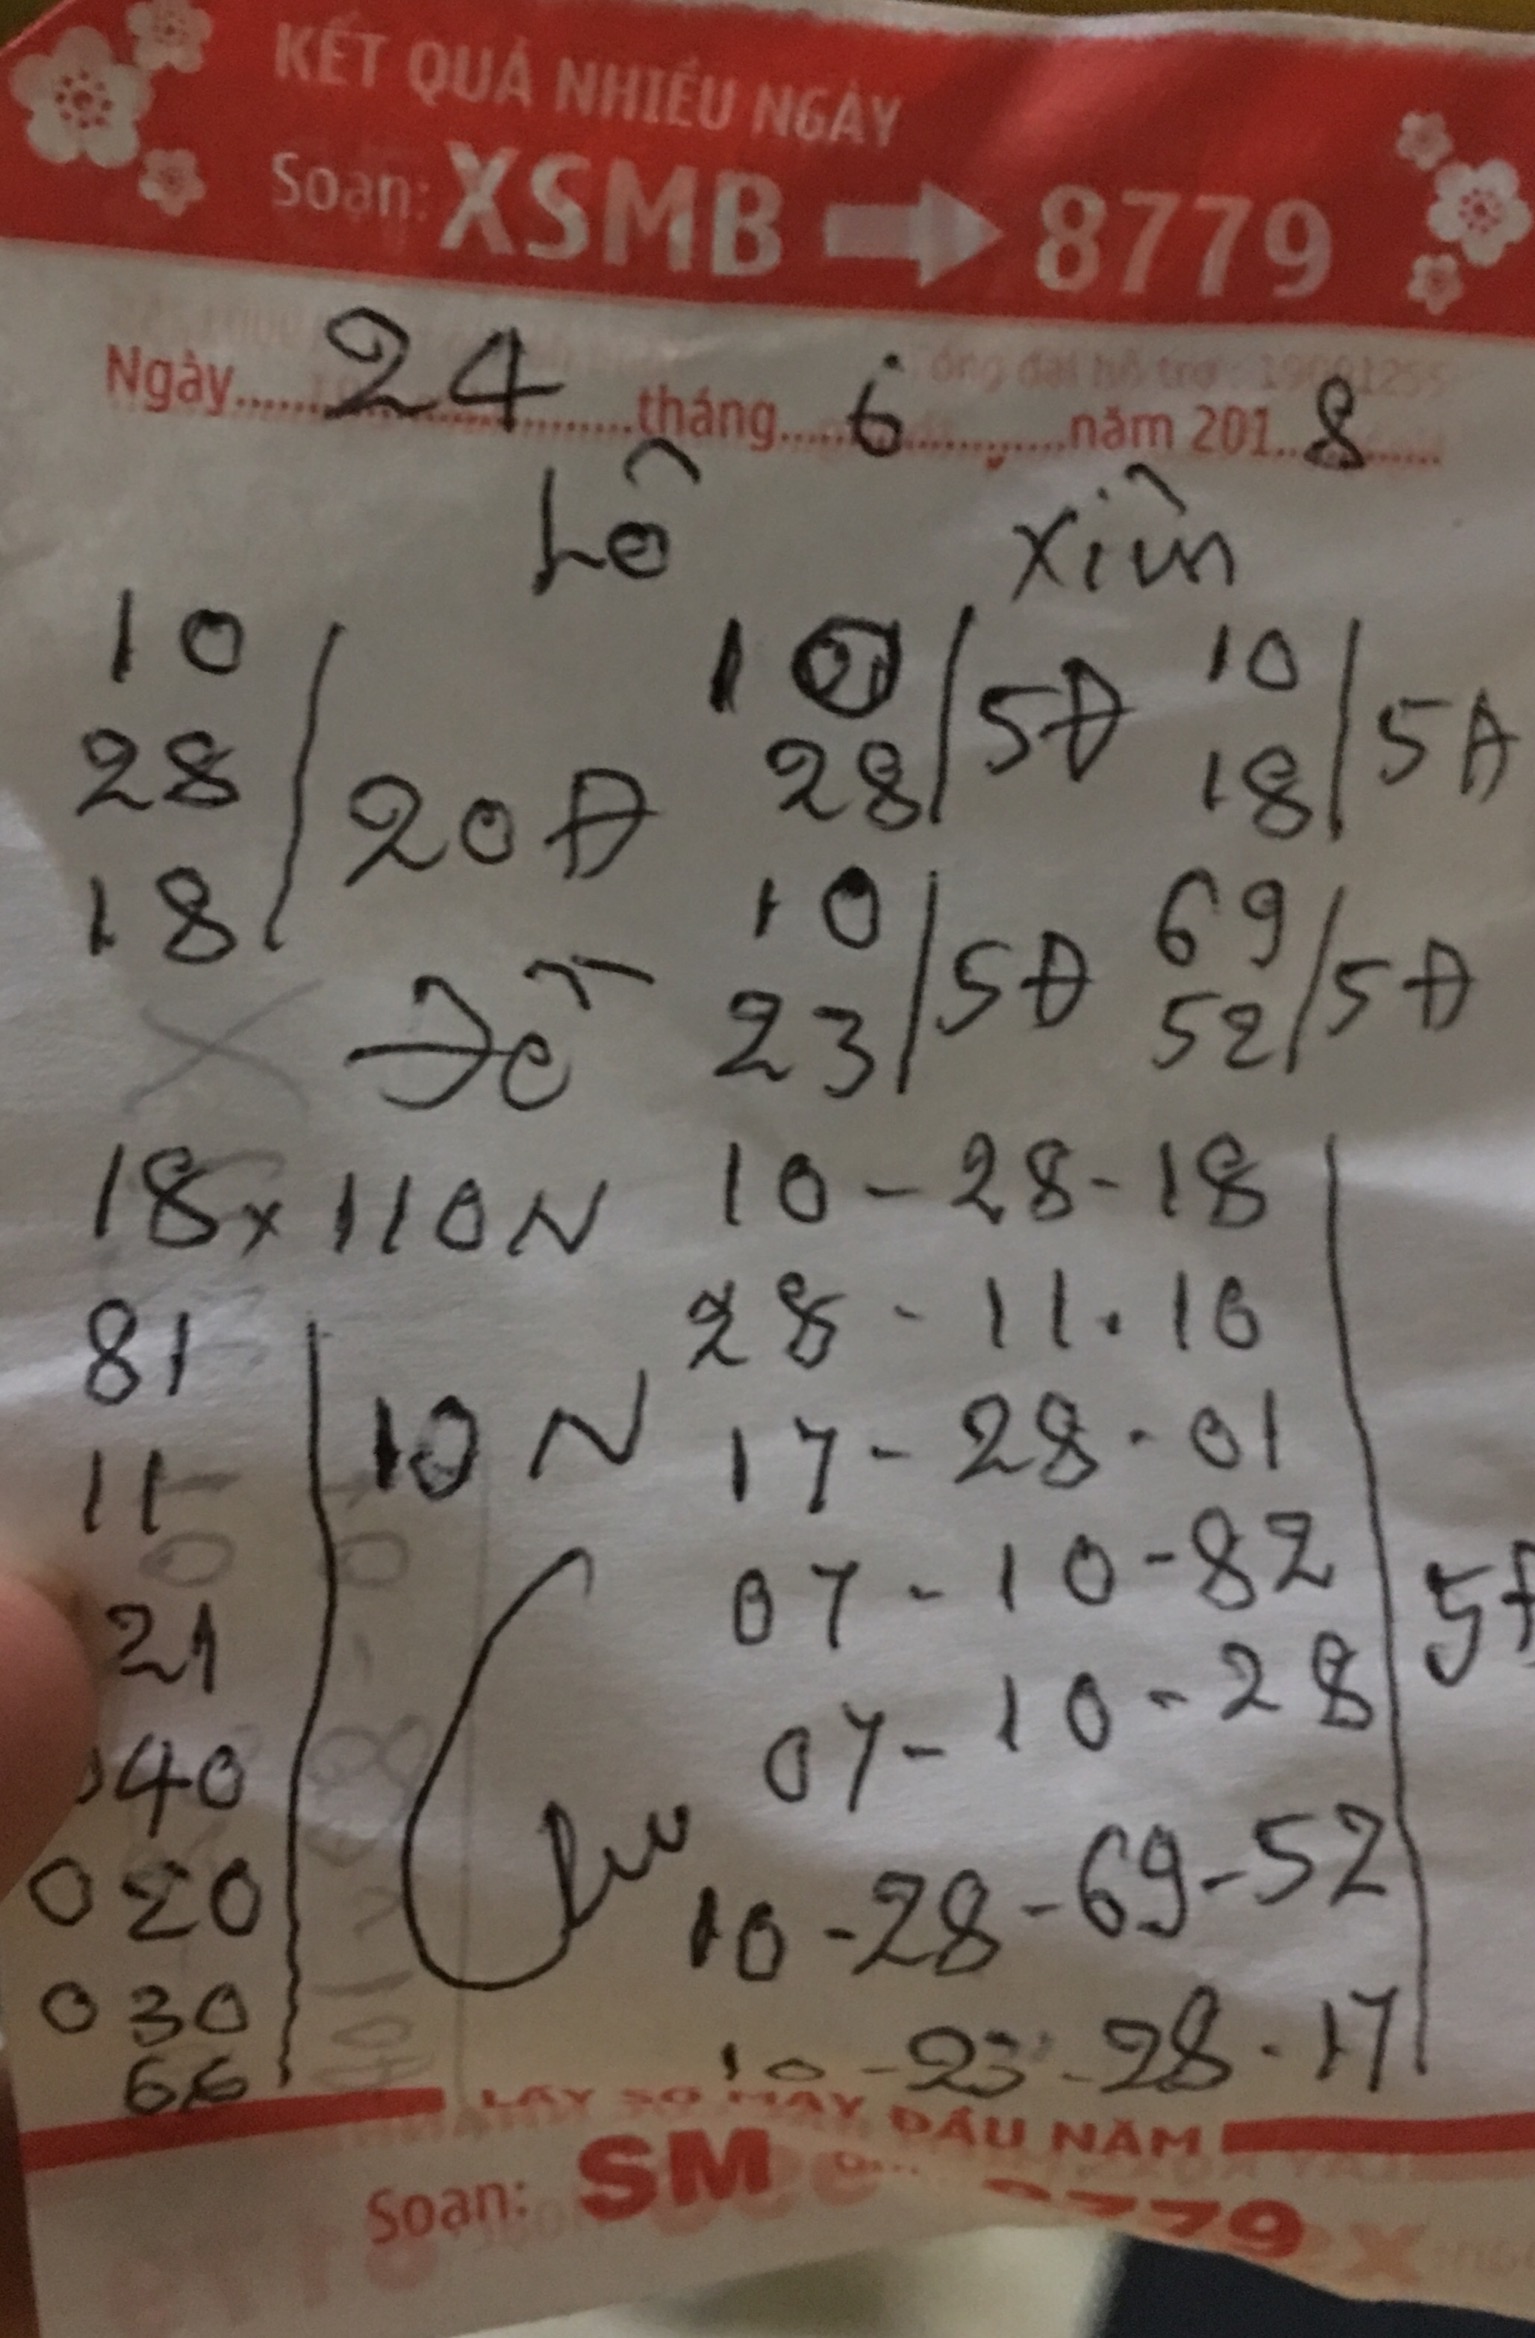 KẾT QUẢ NHIỀU NGÀY
Soạn: XSMB 8779
Ngày 24 tháng 6 năm 201 8
Lô
10
28 20Đ
18
Đề
18 x 110N
81
11 10 N
21
40
020
030
66
Xiên
10
28 5Đ
10
18 5Đ
10
23 5Đ
69
52 5Đ
10 - 28 - 18
28 - 11 . 10
17 - 28 - 01
07 - 10 - 82
07 - 10 - 28
10 - 28 - 69 - 52
10 - 23 - 28 . 17
5Đ
LẤY SỐ MAY ĐẦU NĂM
Soạn: SM